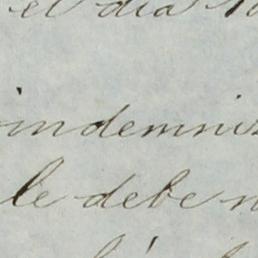 el dia
indemniz
le debe